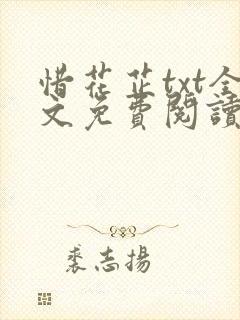 惜花芷txt全
文免費閱讀
裘志揚